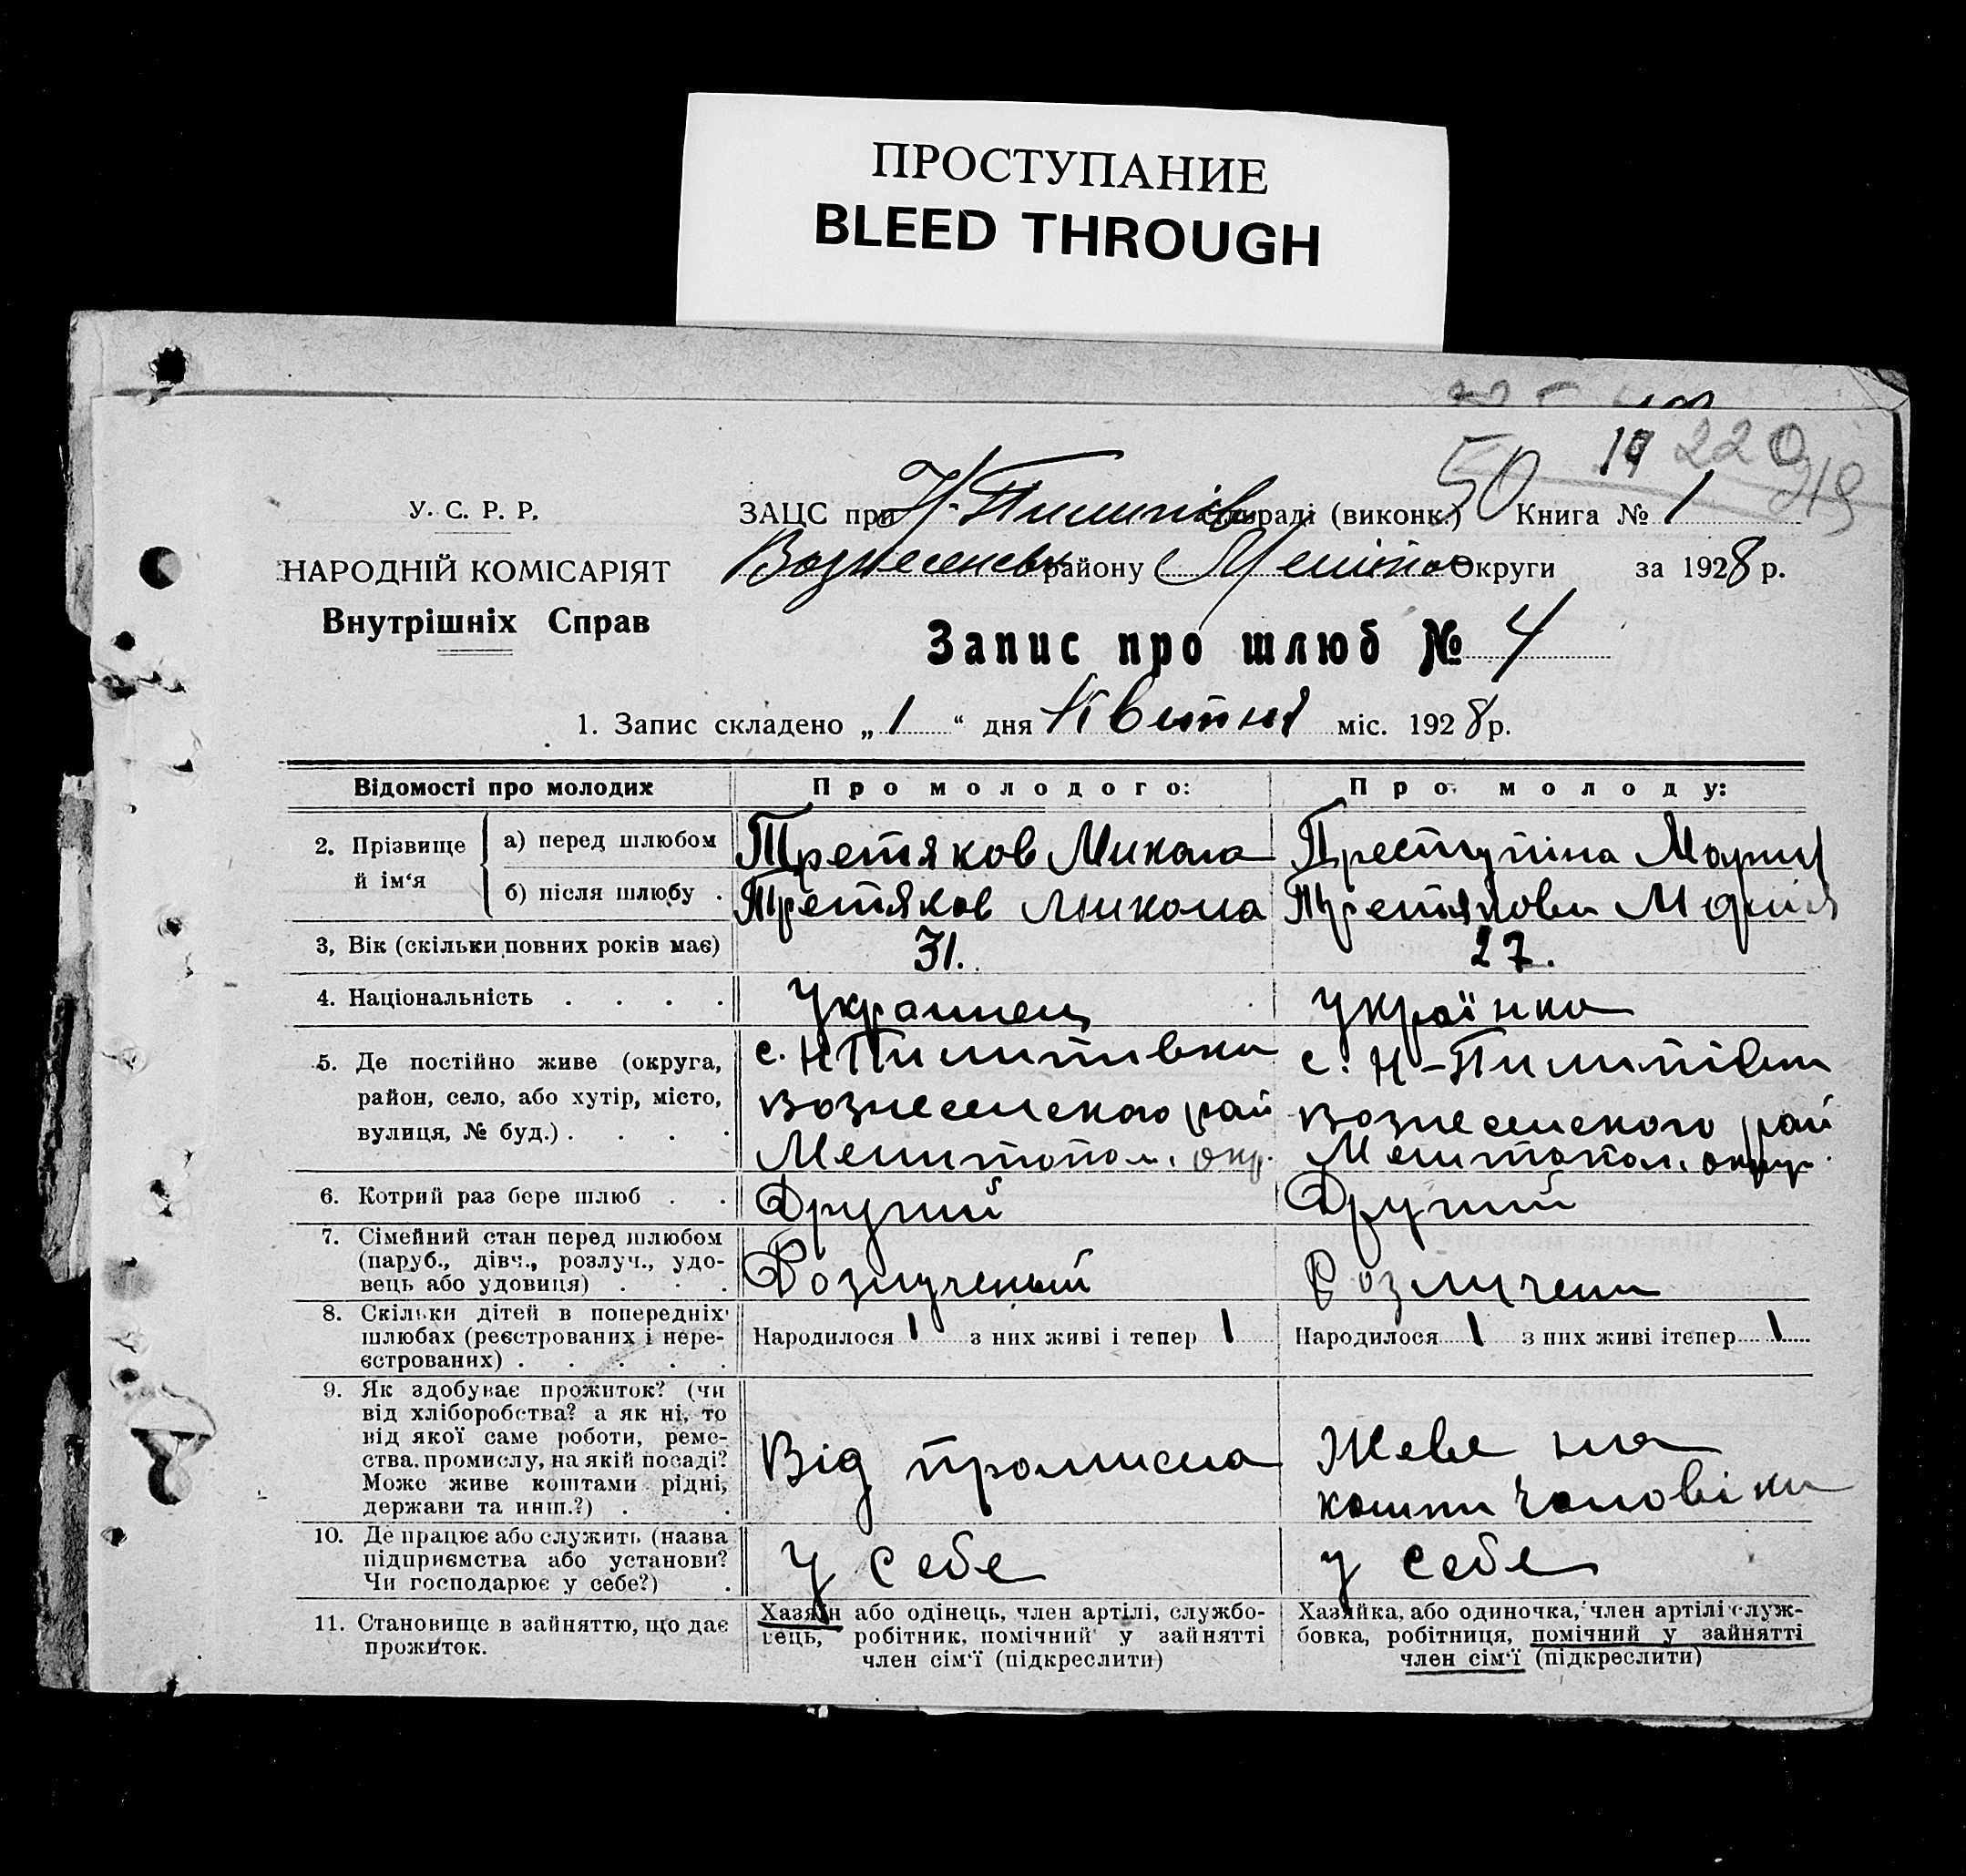 ПРОСТУПАНИЕ
BLEED THROUGH
50 220
У. С. Р. Р.
НАРОДНІЙ КОМІСАРІЯТ
Внутрішніх Справ
ЗАЦС при Н-Пилипів раді (виконк.) Книга № 1
Вознесенськ району Меліто Округи за 1928 р.
Запис про шлюб № 4
1. Запис складено „1“ дня Квітня міс. 1928 р.
Відомості про молодих Про молодого: Про молоду:
2. Прізвище й ім‘я а) перед шлюбом Третяков Микола Преступіна Мария
б) після шлюбу . Третяков Микола Третякова Марія
3, Вік (скільки повних років має) 31. 27.
4. Національність . . . . Украинец Українка
5. Де постійно живе (округа, с. Н Пилипивка с. Н-Пилипівка
район, село, або хутір, місто, Вознесенского рай Вознесенского рай
вулиця, № буд.) . . . . Мелитопол. окр. Мелитопол. окр.
6. Котрий раз бере шлюб . . Другий Другий
7. Сімейний стан перед шлюбом
(паруб., дівч., розлуч., удо-
вець або удовиця) . . . Розлученый Розлучена
8. Скільки дітей в попередніх
шлюбах (реєстрованих і нере- Народилося 1 з них живі і тепер 1 Народилося 1 з них живі ітепер 1
єстрованих) . . . . .
9. Як здобуває прожиток? (чи
від хліборобства? а як ні, то
від якої саме роботи, реме- Від промисла Жеве на
ства, промислу, на якій посаді?
Може живе коштами рідні, кошти чоловіка
держави та инш.?) . .
10. Де працює або служить (назва
підприємства або установи? у себе у себе
Чи господарює у себе?) .
11. Становище в зайняттю, що дає
прожиток.
Хазяїн або одінець, член артілі, службо-
вець, робітник, помічний у зайнятті
член сім‘ї (підкреслити)
Хазяйка, або одиночка, член артілі служ-
бовка, робітниця, помічний у зайнятті
член сім‘ї (підкреслити)